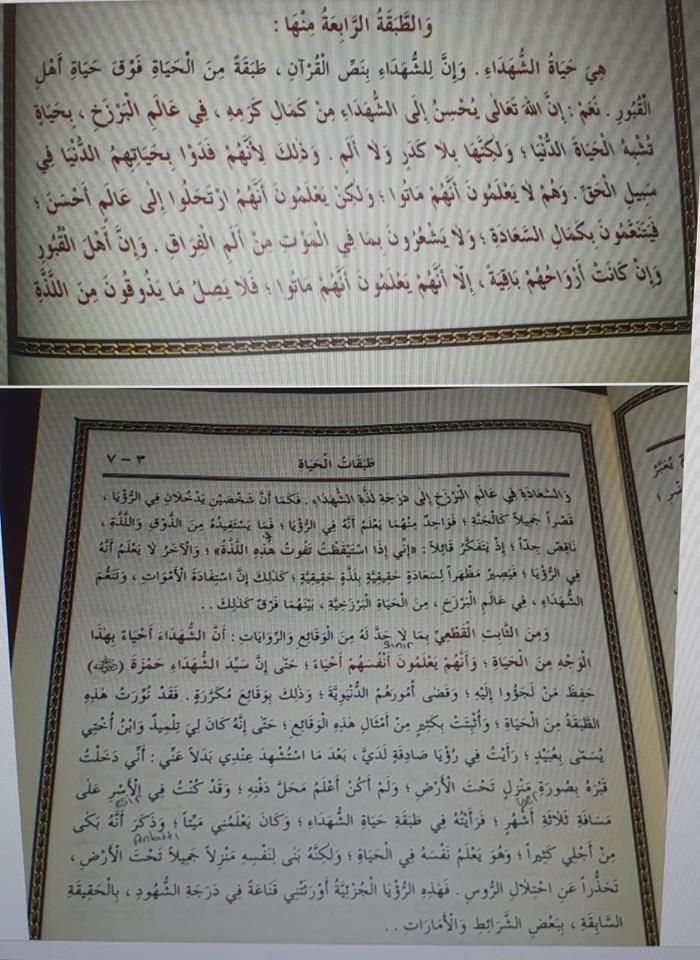 وَالطَّبَقَةُ الرَّابِعَةُ مِنْهَا :
هِيَ حَيَاةُ الشُّهَدَاءِ . وَإِنَّ لِلشُّهَدَاءِ بِنَصِّ الْقُرْآنِ ، طَبَقَةً مِنَ الْحَيَاةِ فَوْقَ حَيَاةِ أَهْلِ
الْقُبُورِ . نَعَمْ : إِنَّ اللهَ تَعَالٰى يُحْسِنُ إِلَى الشُّهَدَاءِ مِنْ كَمَالِ كَرَمِهِ ، فِي عَالَمِ الْبَرْزَخِ ، بِحَيَاةٍ
تُشْبِهُ الْحَيَاةَ الدُّنْيَا ؛ وَلٰكِنَّهَا بِلَا كَدَرٍ وَلَا أَلَمٍ . وَذٰلِكَ لِأَنَّهُمْ فَدَوْا بِحَيَاتِهِمُ الدُّنْيَا فِي
سَبِيلِ الْحَقِّ . وَهُمْ لَا يَعْلَمُونَ أَنَّهُمْ مَاتُوا ؛ وَلٰكِنْ يَعْلَمُونَ أَنَّهُمُ ارْتَحَلُوا إِلٰى عَالَمٍ أَحْسَنَ ؛
فَيَتَنَعَّمُونَ بِكَمَالِ السَّعَادَةِ ؛ وَلَا يَشْعُرُونَ بِمَا فِي الْمَوْتِ مِنْ أَلَمِ الْفِرَاقِ . وَإِنَّ أَهْلَ الْقُبُورِ
وَإِنْ كَانَتْ أَرْوَاحُهُمْ بَاقِيَةً ، إِلَّا أَنَّهُمْ يَعْلَمُونَ أَنَّهُمْ مَاتُوا ؛ فَلَا يَصِلُ مَا يَذُوقُونَ مِنَ اللَّذَّةِ
طَبَقَاتُ الْحَيَاةِ ٣ – ٧
وَالسَّعَادَةِ فِي عَالَمِ الْبَرْزَخِ إِلٰى دَرَجَةِ لَذَّةِ الشُّهَدَاءِ . فَكَمَا أَنَّ شَخْصَيْنِ يَدْخُلَانِ فِي الرُّؤْيَا ،
قَصْراً جَمِيلاً كَالْجَنَّةِ ؛ فَوَاحِدٌ مِنْهُمَا يَعْلَمُ أَنَّهُ فِي الرُّؤْيَا ؛ فَمَا يَسْتَفِيدُهُ مِنَ الذَّوْقِ وَاللَّذَّةِ ،
نَاقِصٌ جِدّاً ؛ إِذْ يَتَفَكَّرُ قَائِلاً : «إِنِّي إِذَا اسْتَيْقَظْتُ تَفُوتُ هٰذِهِ اللَّذَّةُ» ؛ وَالْآخَرُ لَا يَعْلَمُ أَنَّهُ
فِي الرُّؤْيَا ؛ فَيَصِيرُ مَظْهَراً لِسَعَادَةٍ حَقِيقِيَّةٍ بِلَذَّةٍ حَقِيقِيَّةٍ ؛ كَذٰلِكَ إِنَّ اسْتِفَادَةَ الْأَمْوَاتِ ، وَتَنَعُّمَ
الشُّهَدَاءِ ، فِي عَالَمِ الْبَرْزَخِ ، مِنَ الْحَيَاةِ الْبَرْزَخِيَّةِ ، بَيْنَهُمَا فَرْقٌ كَذٰلِكَ . .
وَمِنَ الثَّابِتِ الْقَطْعِيِّ بِمَا لَا حَدَّ لَهُ مِنَ الْوَقَائِعِ وَالرِّوَايَاتِ : أَنَّ الشُّهَدَاءَ أَحْيَاءٌ بِهٰذَا
sınır
الْوَجْهِ مِنَ الْحَيَاةِ ؛ وَأَنَّهُمْ يَعْلَمُونَ أَنْفُسَهُمْ أَحْيَاءً ؛ حَتّٰى إِنَّ سَيِّدَ الشُّهَدَاءِ حَمْزَةَ (رضي الله عنه)
حَفِظَ مَنْ لَجَؤُوا إِلَيْهِ ؛ وَقَضٰى أُمُورَهُمُ الدُّنْيَوِيَّةَ ؛ وَذٰلِكَ بِوَقَائِعَ مُكَرَّرَةٍ . فَقَدْ نُوِّرَتْ هٰذِهِ
الطَّبَقَةُ مِنَ الْحَيَاةِ ؛ وَأُثْبِتَتْ بِكَثِيرٍ مِنْ أَمْثَالِ هٰذِهِ الْوَقَائِعِ ؛ حَتّٰى إِنَّهُ كَانَ لِي تِلْمِيذٌ وَابْنُ أُخْتِي
يُسَمّٰى بِعُبَيْدٍ ؛ رَأَيْتُ فِي رُؤْيَا صَادِقَةٍ لَدَيَّ ، بَعْدَ مَا اسْتُشْهِدَ عِنْدِي بَدَلاً عَنِّي : أَنِّي دَخَلْتُ
قَبْرَهُ بِصُورَةِ مَنْزِلٍ تَحْتَ الْأَرْضِ ؛ وَلَمْ أَكُنْ أَعْلَمُ مَحَلَّ دَفْنِهِ ؛ وَقَدْ كُنْتُ فِي الْأَسْرِ عَلٰى
esir yer
مَسَافَةِ ثَلَاثَةِ أَشْهُرٍ ؛ فَرَأَيْتُهُ فِي طَبَقَةِ حَيَاةِ الشُّهَدَاءِ ؛ وَكَانَ يَعْلَمُنِي مَيِّتاً ؛ وَذَكَرَ أَنَّهُ بَكٰى
Anlattı
مِنْ أَجْلِي كَثِيراً ؛ وَهُوَ يَعْلَمُ نَفْسَهُ فِي الْحَيَاةِ ؛ وَلٰكِنَّهُ بَنٰى لِنَفْسِهِ مَنْزِلاً جَمِيلاً تَحْتَ الْأَرْضِ ،
تَحَذُّراً عَنِ احْتِلَالِ الرُّوسِ . فَهٰذِهِ الرُّؤْيَا الْجُزْئِيَّةُ أَوْرَثَتْنِي قَنَاعَةً فِي دَرَجَةِ الشُّهُودِ ، بِالْحَقِيقَةِ
السَّابِقَةِ ، بِبَعْضِ الشَّرَائِطِ وَالْأَمَارَاتِ . .